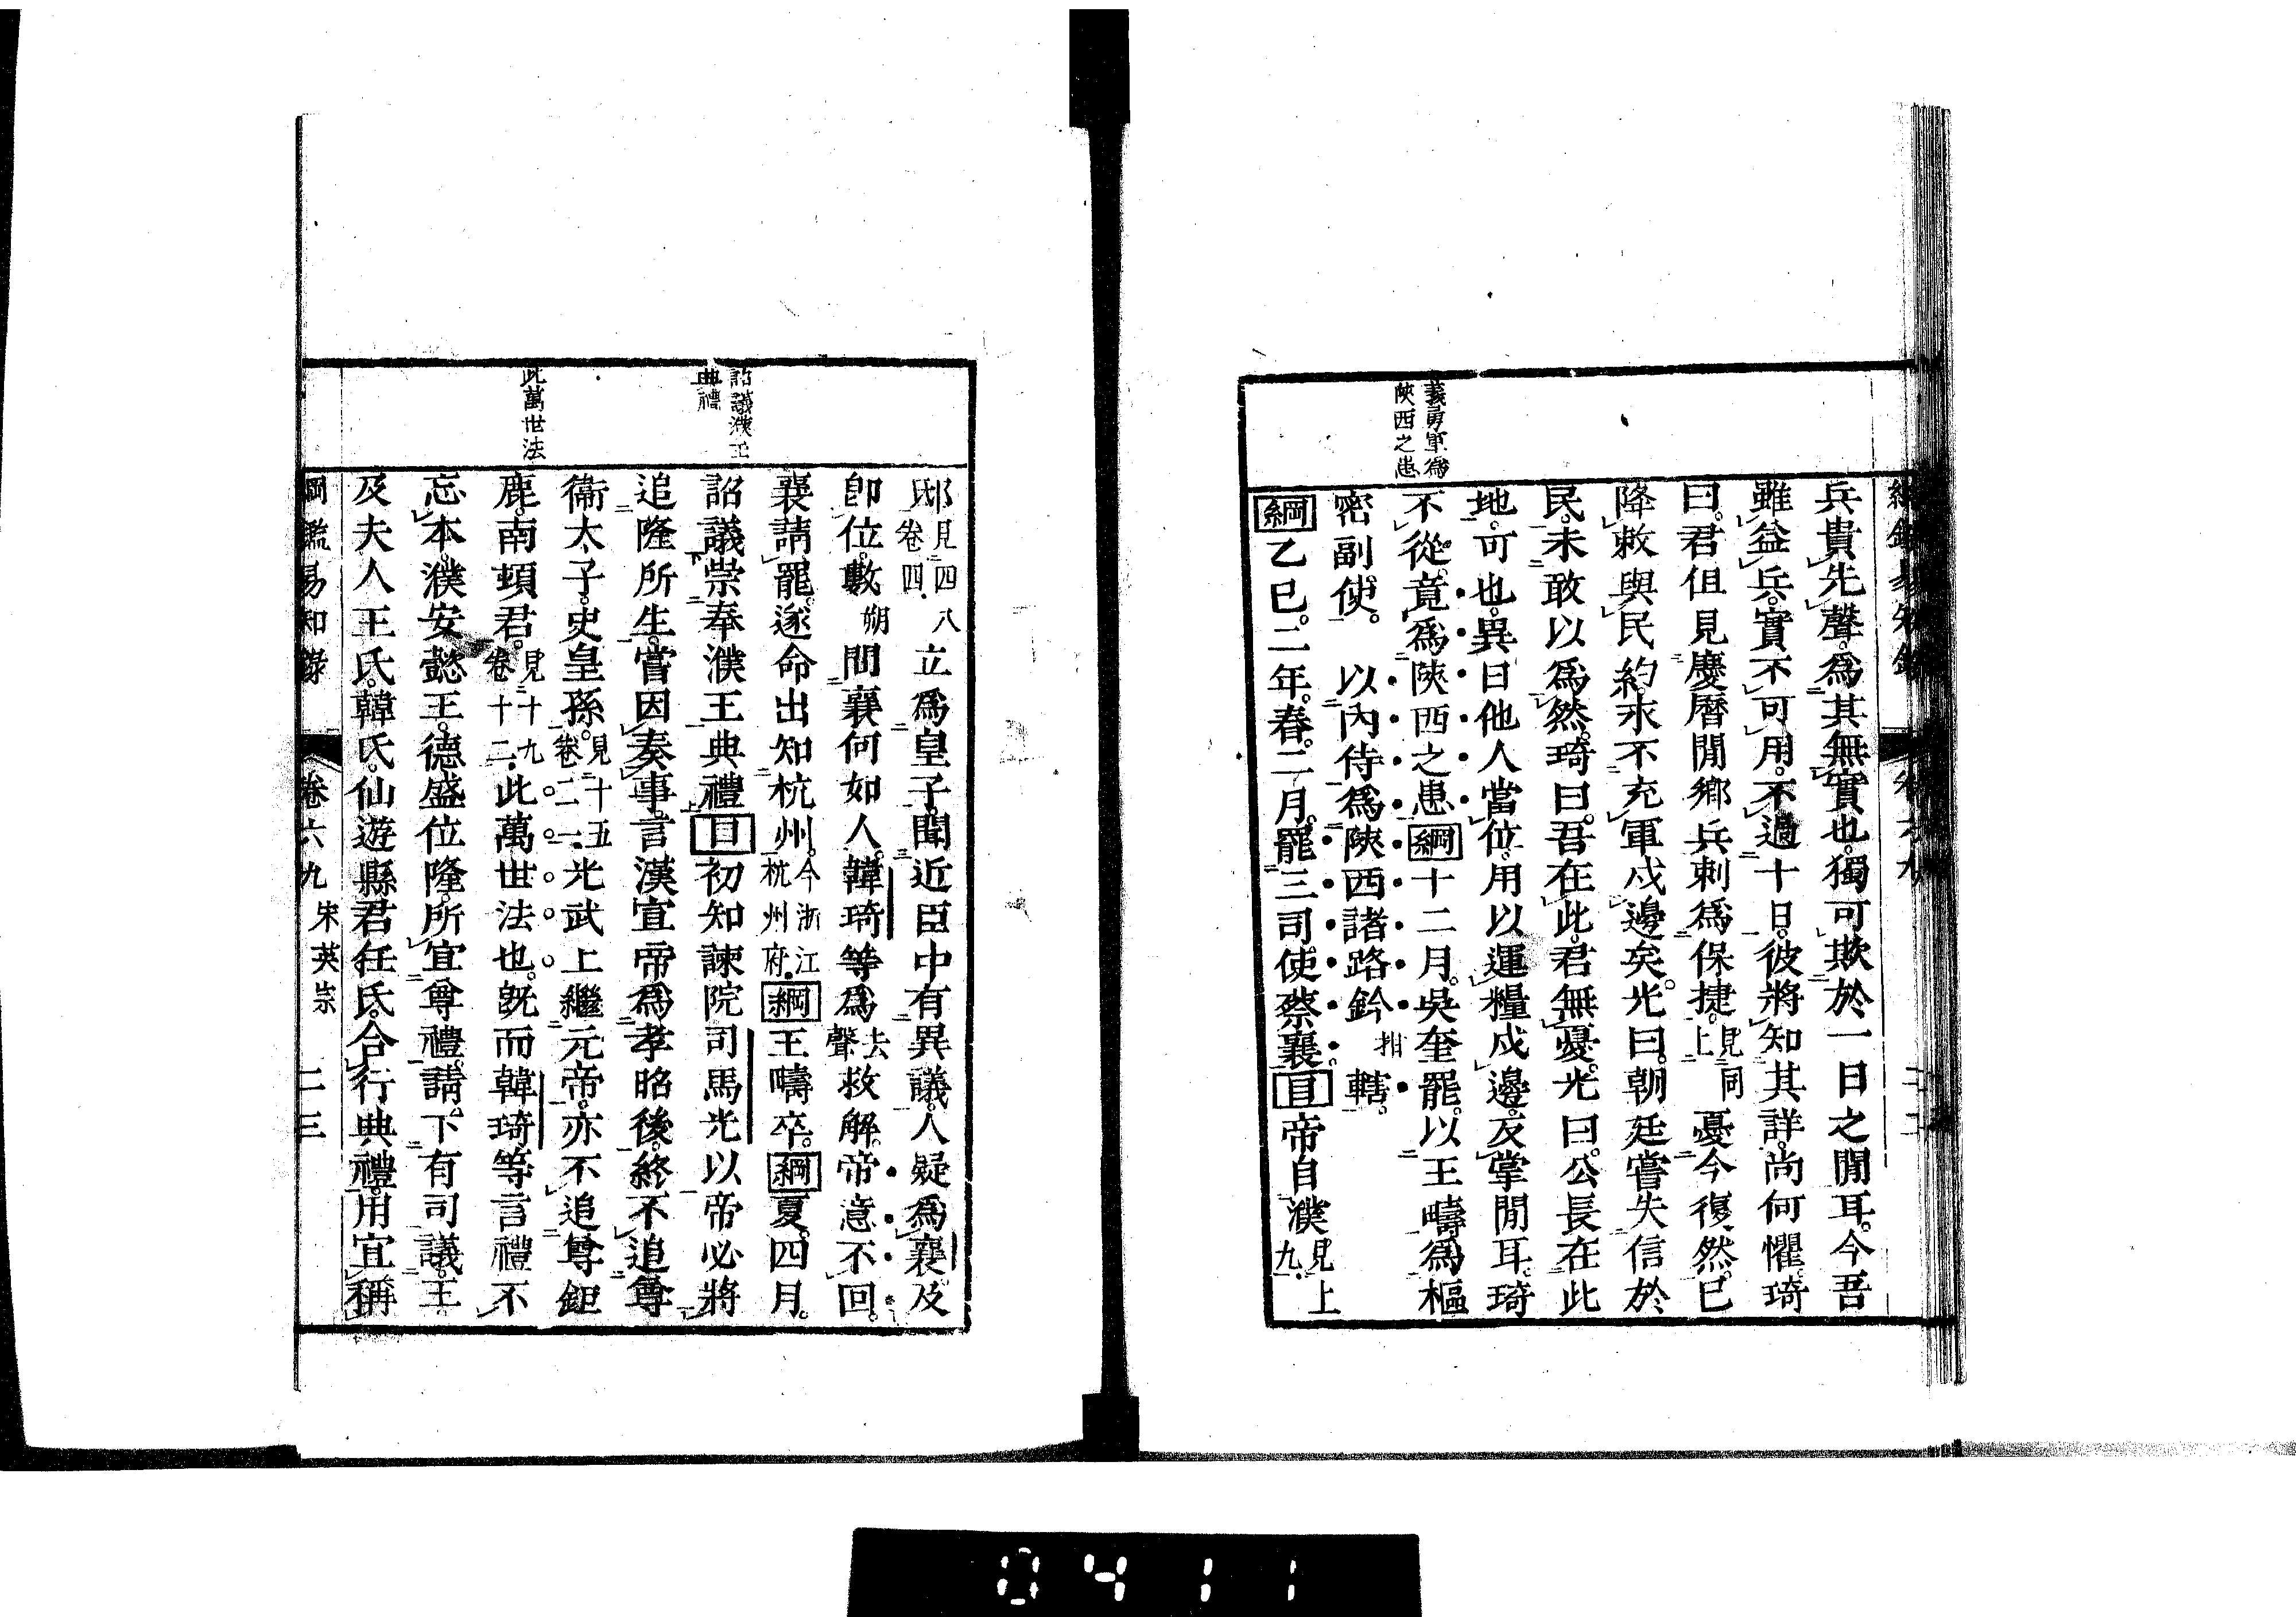 兵貴先聲。爲其無實也。獨可欺於一日之閒耳。今吾
雖益兵。實不可用。不過十日。彼將知其詳。尚何懼。琦
曰。君但見慶曆閒鄉兵刺爲保捷。見上同憂今復然。已
降敕與民約。永不充軍戍邊矣。光曰。朝廷嘗失信於
民。未敢以爲然。琦曰。吾在此。君無憂。光曰。公長在此
地。可也。異日他人當位。用以運糧戍邊。反掌閒耳。琦
不從。竟爲陝西之患綱十二月。吳奎罷。以王疇爲樞
密副使。以內待爲陝西諸路鈐拑轄。
綱乙巳。二年。春。二月。罷三司使蔡襄。目帝自濮見上九
義勇軍爲
陝西之患
邸見四八卷四立爲皇子。聞近臣中有異議。人疑爲襄。及
卽位。數朔問襄。何如人。韓琦等爲去聲救解。帝意不回。
襄請罷。遂命出知杭州。今浙江杭州府綱王疇卒。綱夏。四月。
詔議崇奉濮王典禮目初知諫院司馬光以帝必將
追隆所生。嘗因奏事。言漢宣帝爲孝昭後。終不追尊
衞太子。史皇孫。見十五卷二一光武上繼元帝。亦不追尊鉅
鹿。南頓君。見十九卷十二此萬世法也。旣而韓琦等言禮不
忘本。濮安懿王。德盛位隆。所宜尊禮。請下有司議。王
及夫人王氏。韓氏。仙遊縣君任氏。合行典禮。用宜稱
詔議濮王
典禮
此萬世法
綱鑑易知錄 卷六九 宋英宗 二三